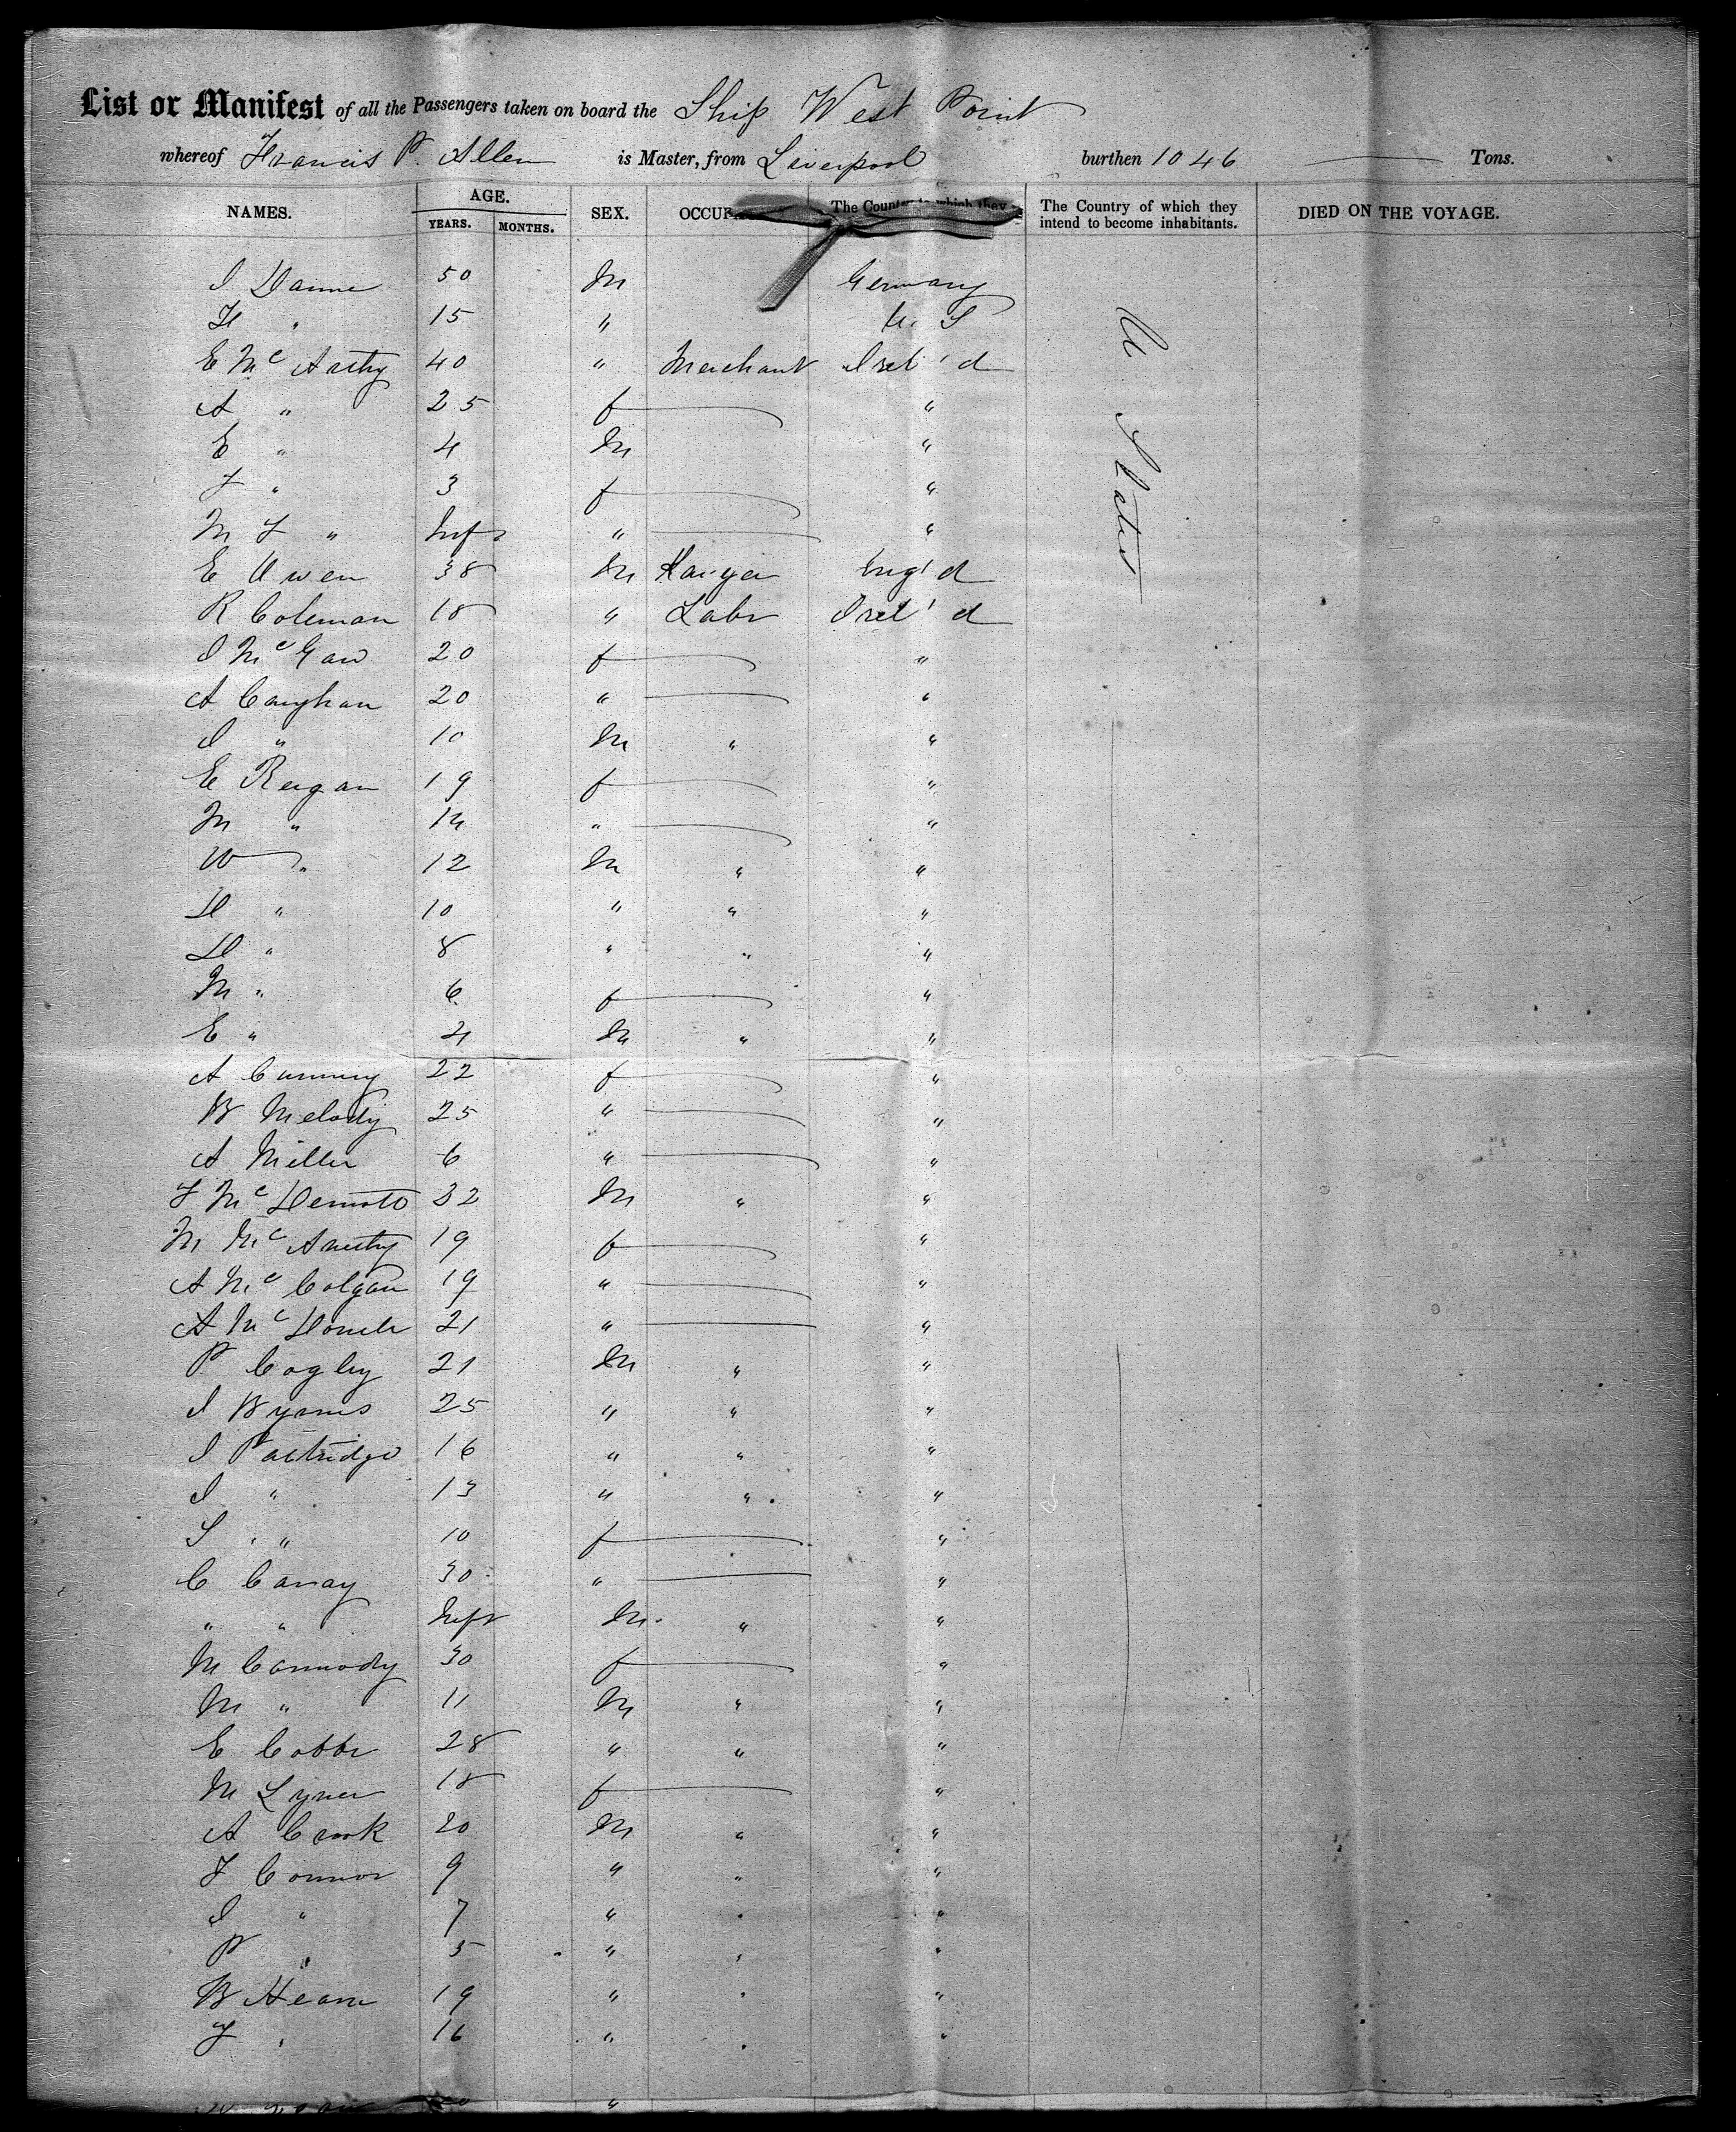 List or Manifest of all the Passengers taken on board the Ship West Point
whereof Francis P. Allen is Master, from Liverpool burthen 1046 Tons.
NAMES. AGE. YEARS. MONTHS. SEX. The Country of which they intend to become inhabitants. DIED ON THE VOYAGE.
50 M Germany
H " 15 " U. S
E Mc Arthy 40 " Merchant Irel'd
A " 25 f "
E " 4 M "
F " 3 f "
M F " Inft " "
E Owen 38 M Eng'd
R Coleman 18 " Labr Irel'd
J Mc Gaw 20 f "
A Caughan 20 " "
J " 10 M " "
E Reagan 19 f "
M " 14 " "
W " 12 M " "
H " 10 " " "
D " 8 " " "
M " 6 f "
E " 4 M " "
A 22 f "
B Melody 25 " "
A Miller 6 " "
F Mc 32 M " "
M Mc 19 f "
A Mc Colgan 19 " "
A Mc 21 " "
P. Cogley 21 M " "
J Byrnes 25 " " "
J Partridge 16 " " "
J " 13 " " "
S " 10 f "
C 30 " "
" " Inft M. " "
M Carmody 30 f "
M " 11 M " "
E Cobbe 28 " " "
M 18 f "
A Crook 20 M " "
F Connor 9 " " "
J " 7 " " "
P " 5 " " "
B Hearn 19 " " "
F " 16 " " "
U States